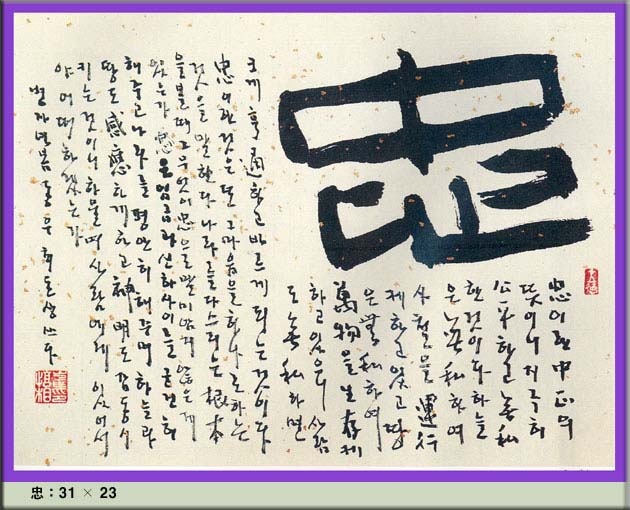 忠
忠이란 中正의
뜻이니 지극히
公平하고 無私
한 것이다 하늘
은 無私하여
사철을 運行
케하고 있고 땅
은 無私하여
萬物을 生存케
하고 있으니 사람
도 無私하면
크게 亨通하고 바르게 되는 것이다
忠이란 것은 또 그 마음을 하나로 하는
것을 말한다 나라를 다스리는 根本
을 볼때 그 무엇이 忠으로 말미암지 않은게
있는가 忠은 임금과 신하 사이를 굳건히
해주고 나라를 평안히 해주며 하늘과
땅도 感應하게 하고 神明도 감동시
키는 것이니 하물며 사람에게 있어서
야 어떠하겠는가
병자년 봄 동우 최돈상 쓰다
忠 : 31 × 23